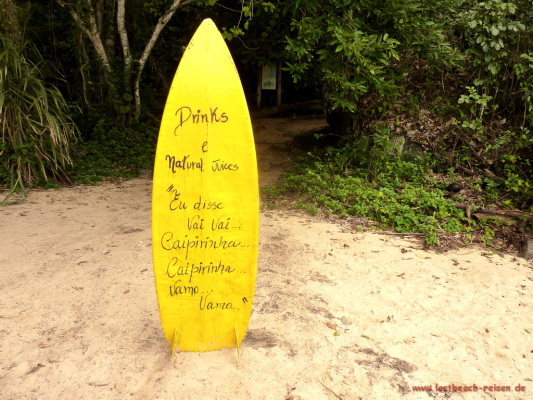 Drinks
e
Natural Juices
"Eu disse
Vai Vai...
Caipirinha...
Caipirinha...
Vamo...
Vama."
www.lastbeach-reisen.de